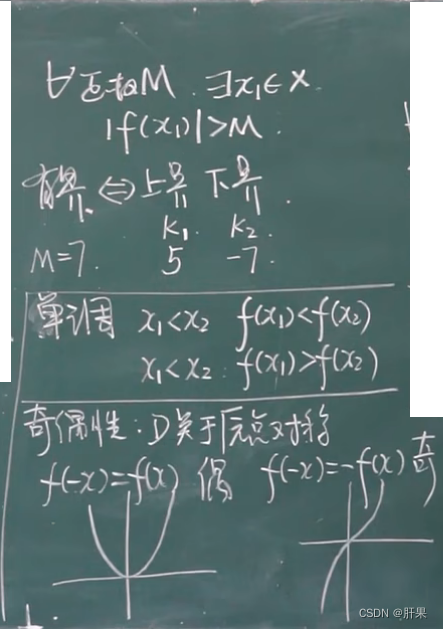 ∀正数M. ∃x₁∈X.
|f(x₁)|>M.
有界⇔上界 下界.
K₁. K₂.
M=7. 5 -7.
单调 x₁<x₂ f(x₁)<f(x₂)
x₁<x₂. f(x₁)>f(x₂)
奇偶性:D关于原点对称
f(-x)=f(x) 偶 f(-x)=-f(x) 奇
CSDN @肝果